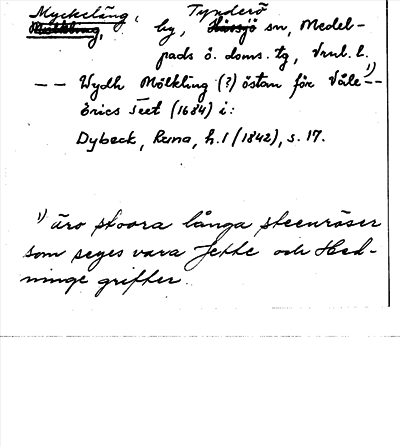 Myckeläng, Tynderö
Mölkling, by, Hässjö sn, Medel-
pads ö. doms. tg, Vnl. l.
-- Wydh Mölkling (?) östan för Våle 1)--
Erics Seet (1684) i:
Dybeck, Runa, h.1 (1842), s. 17.
1) äro stoora långa steenröser
som seyes vara Jette och Hed-
ninge grifter.